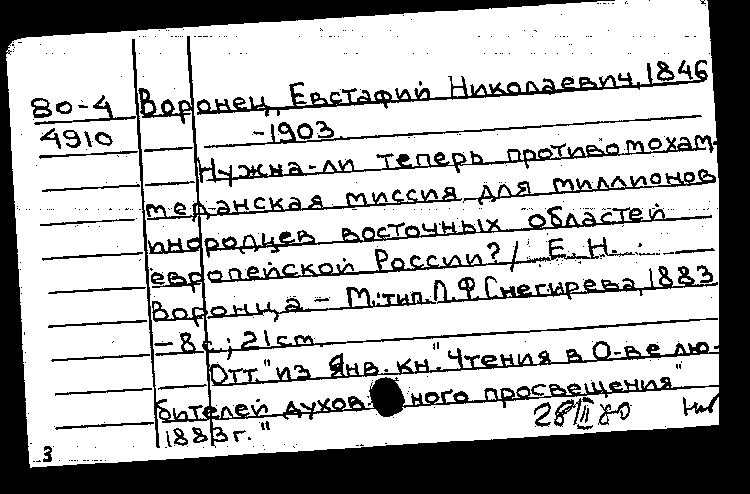 80-4 Воронец, Евстафий Николаевич, 1846
4910 -1903.
Нужна-ли теперь противомохам-
меданская миссия для миллионов
инородцев восточных областей
европейской России? / Е. Н.
Воронца. - М.: тип. Л. Ф. Снегирева, 1883
- 8 с.; 21 cm.
Отт. "из Янв. кн. "Чтения в О-ве лю-
бителей духовного просвещения"
1883 г."
28/II 80
3